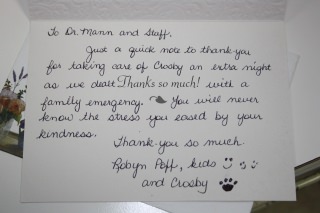 To Dr. Mann and Staff,
Just a quick note to thank-you
for taking care of Crosby an extra night
as we dealt Thanks so much! with a
family emergency. You will never
know the stress you eased by your
kindness.
Thank-you so much
Robyn Poff, kids
and Crosby